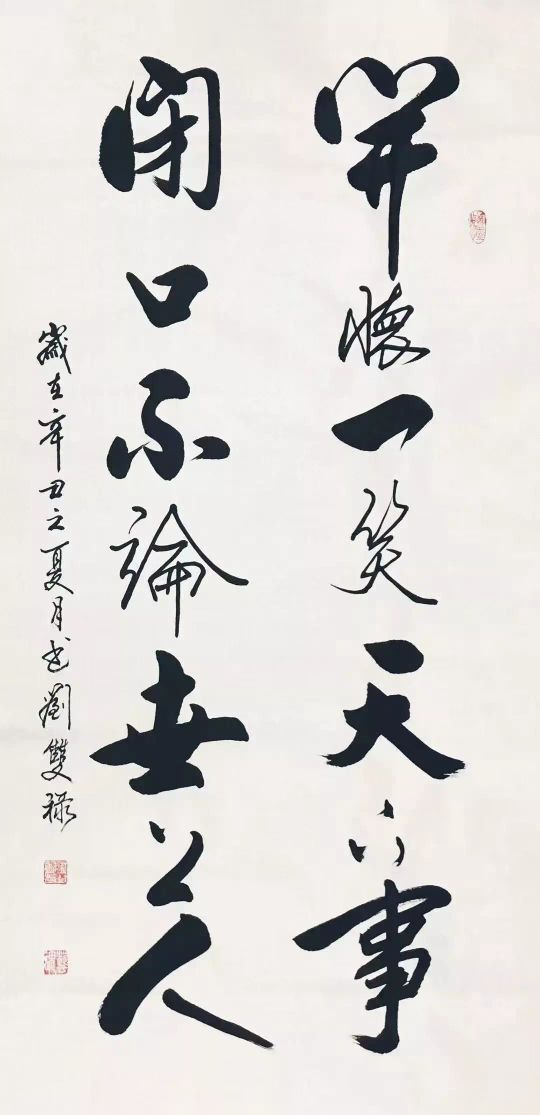 開懷一笑天下事
閉口不論世上人
歲在辛丑之夏月书劉雙祿